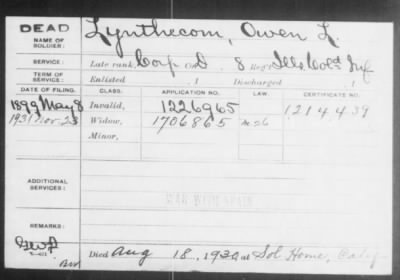 DEAD
NAME OF SOLDIER: Lynthecom, Owen L.
SERVICE: Late rank, Corp Co. D, 8 Reg't Ills Col'd Inf
TERM OF SERVICE: Enlisted , 1 Discharged , 1
DATE OF FILING. CLASS. APPLICATION NO. LAW. CERTIFICATE NO.
1899 May 8 Invalid, 1226965 1214439
1931 Nov-23 Widow, 1706865
Minor,
ADDITIONAL SERVICES:
WAR WITH SPAIN
REMARKS:
Died Aug 18, 1930 at Sol Home, Calif